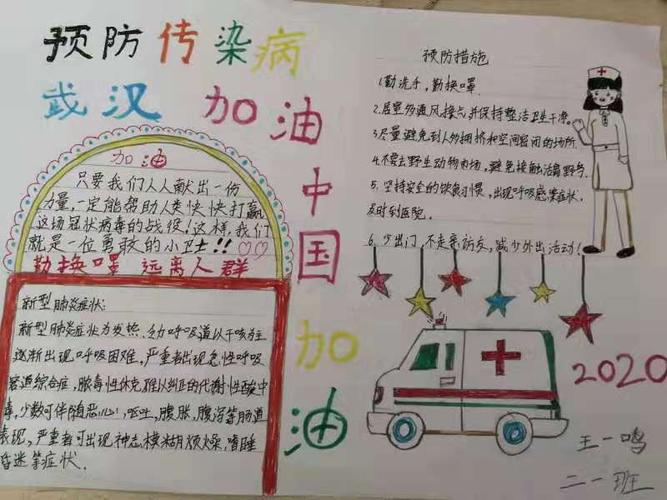 预防传染病
武汉 加油中国加油
加油
只要我们人人献出一份
力量,一定能帮助人类快快打赢
这场冠状病毒的战役!这样,我们
就是一位勇敢的小卫士!!
勤换口罩 远离人群
新型肺炎症状:
新型肺炎症状为发热、幼呼吸道以干咳为主
逐渐出现呼吸困难,严重者出现急性呼吸
窘迫综合症,脓毒性休克,难以纠正的代谢性酸中
毒,少数可伴随恶心、呕吐,腹胀,腹泻等肠道
表现,严重者可出现神志模糊烦燥,嗜睡
昏迷等症状.
预防措施
1.勤洗手,勤换口罩.
2.居室勿通风换气并保持整洁卫生干净.
3.尽量避免到人多拥挤和空间密闭的场所.
4.不要去野生动物市场,避免接触活禽野兽.
5、坚持安全的饮食习惯,出现呼吸感染症状,
及时到医院.
6.少出门,不走亲访友,减少外出活动!
2020
王一鸣
二一班